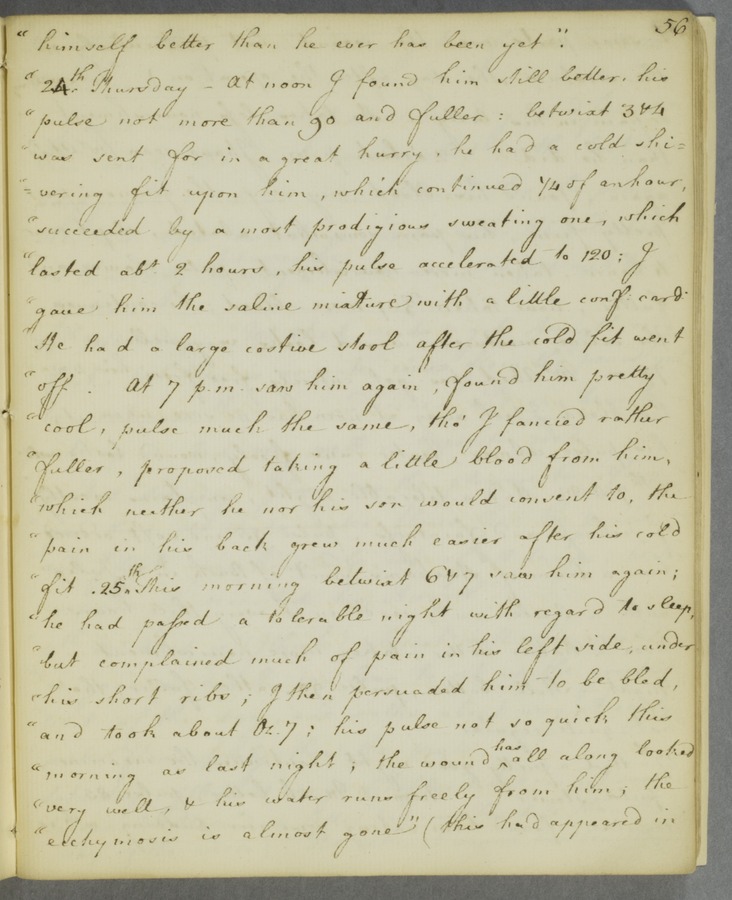 56
“himself better than he ever has been yet”.
“24th Thursday – At noon I found him still better, his
“pulse not more than 90 and fuller: betwixt 3 & 4
“was sent for in a great hurry, he had a cold shi=
“=vering fit upon him, which continued 1/4 of an hour,
“succeeded by a most prodigious sweating one, which
“lasted abt. 2 hours, his pulse accelerated to 120; I
“gave him the saline mixture with a little conf: card:
“He had a large costive stool after the cold fit went
“off. At 7 p.m. saw him again, found him pretty
“cool, pulse much the same, tho' I fancied rather
“fuller, proposed taking a little blood from him,
“which neither he nor his son would consent to, the
“pain in his back grew much easier after his cold
“fit. 25th. This morning betwixt 6 & 7 saw him again;
“he had passed a tolerable night with regard to sleep,
“but complained much of pain in his left side, under
“his short ribs; I then persuaded him to be bled,
“and took about Oz. 7; his pulse not so quick this
“morning as last night; the wound has all along looked
“very well, & his water runs freely from him; the
“ecchymosis is almost gone” (this had appeared in